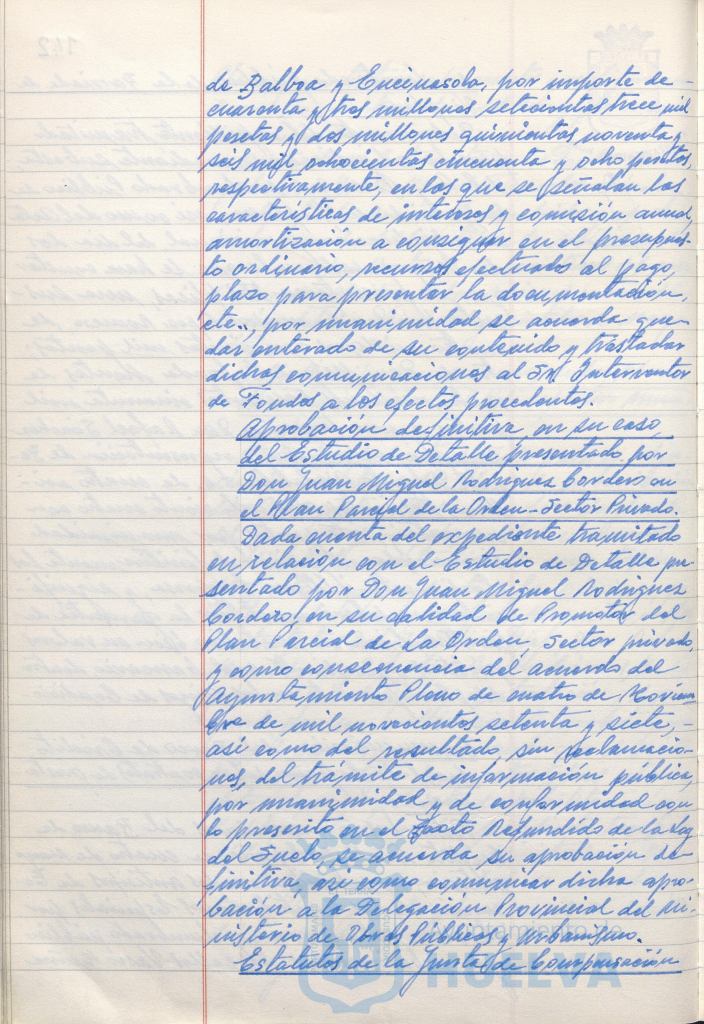 de Balboa y Encinasola, por importe de -
cuarenta y tres millones setecientas trece mil
pesetas y dos millones quinientas noventa y
seis mil ochocientas cincuenta y ocho pesetas,
respectivamente, en los que se señalan las
características de intereses y comisión anual,
amortización a consignar en el presupues-
to ordinario, recursos efectuados al pago,
plazo para presentar la documentación,
etc., por unanimidad se acuerda que-
dar enterado de su contenido y trasladar
dichas comunicaciones al Sr. Interventor
de Fondos a los efectos procedentes.
Aprobación definitiva, en su caso,
del Estudio de Detalle presentado por
Don Juan Miguel Rodriguez Cordero en
el Plan Parcial de la Orden-Sector Privado.
Dada cuenta del expediente tramitado
en relación con el Estudio de Detalle pre-
sentado por Don Juan Miguel Rodriguez
Cordero, en su calidad de Promotor del
Plan Parcial de La Orden, Sector privado,
y como consecuencia del acuerdo del
Ayuntamiento Pleno de cuatro de Noviem
bre de mil novecientos setenta y siete, -
así como del resultado, sin reclamacio-
nes, del trámite de información pública,
por unanimidad y de conformidad con
lo prescrito en el Texto Refundido de la Ley
del Suelo, se acuerda su aprobación de-
finitiva, así como comunicar dicha apro-
bación a la Delegación Provincial del Mi-
nisterio de Obras Públicas y Urbanismo.
Estatutos de la Junta de Compensación
Ayuntamiento de
HUELVA